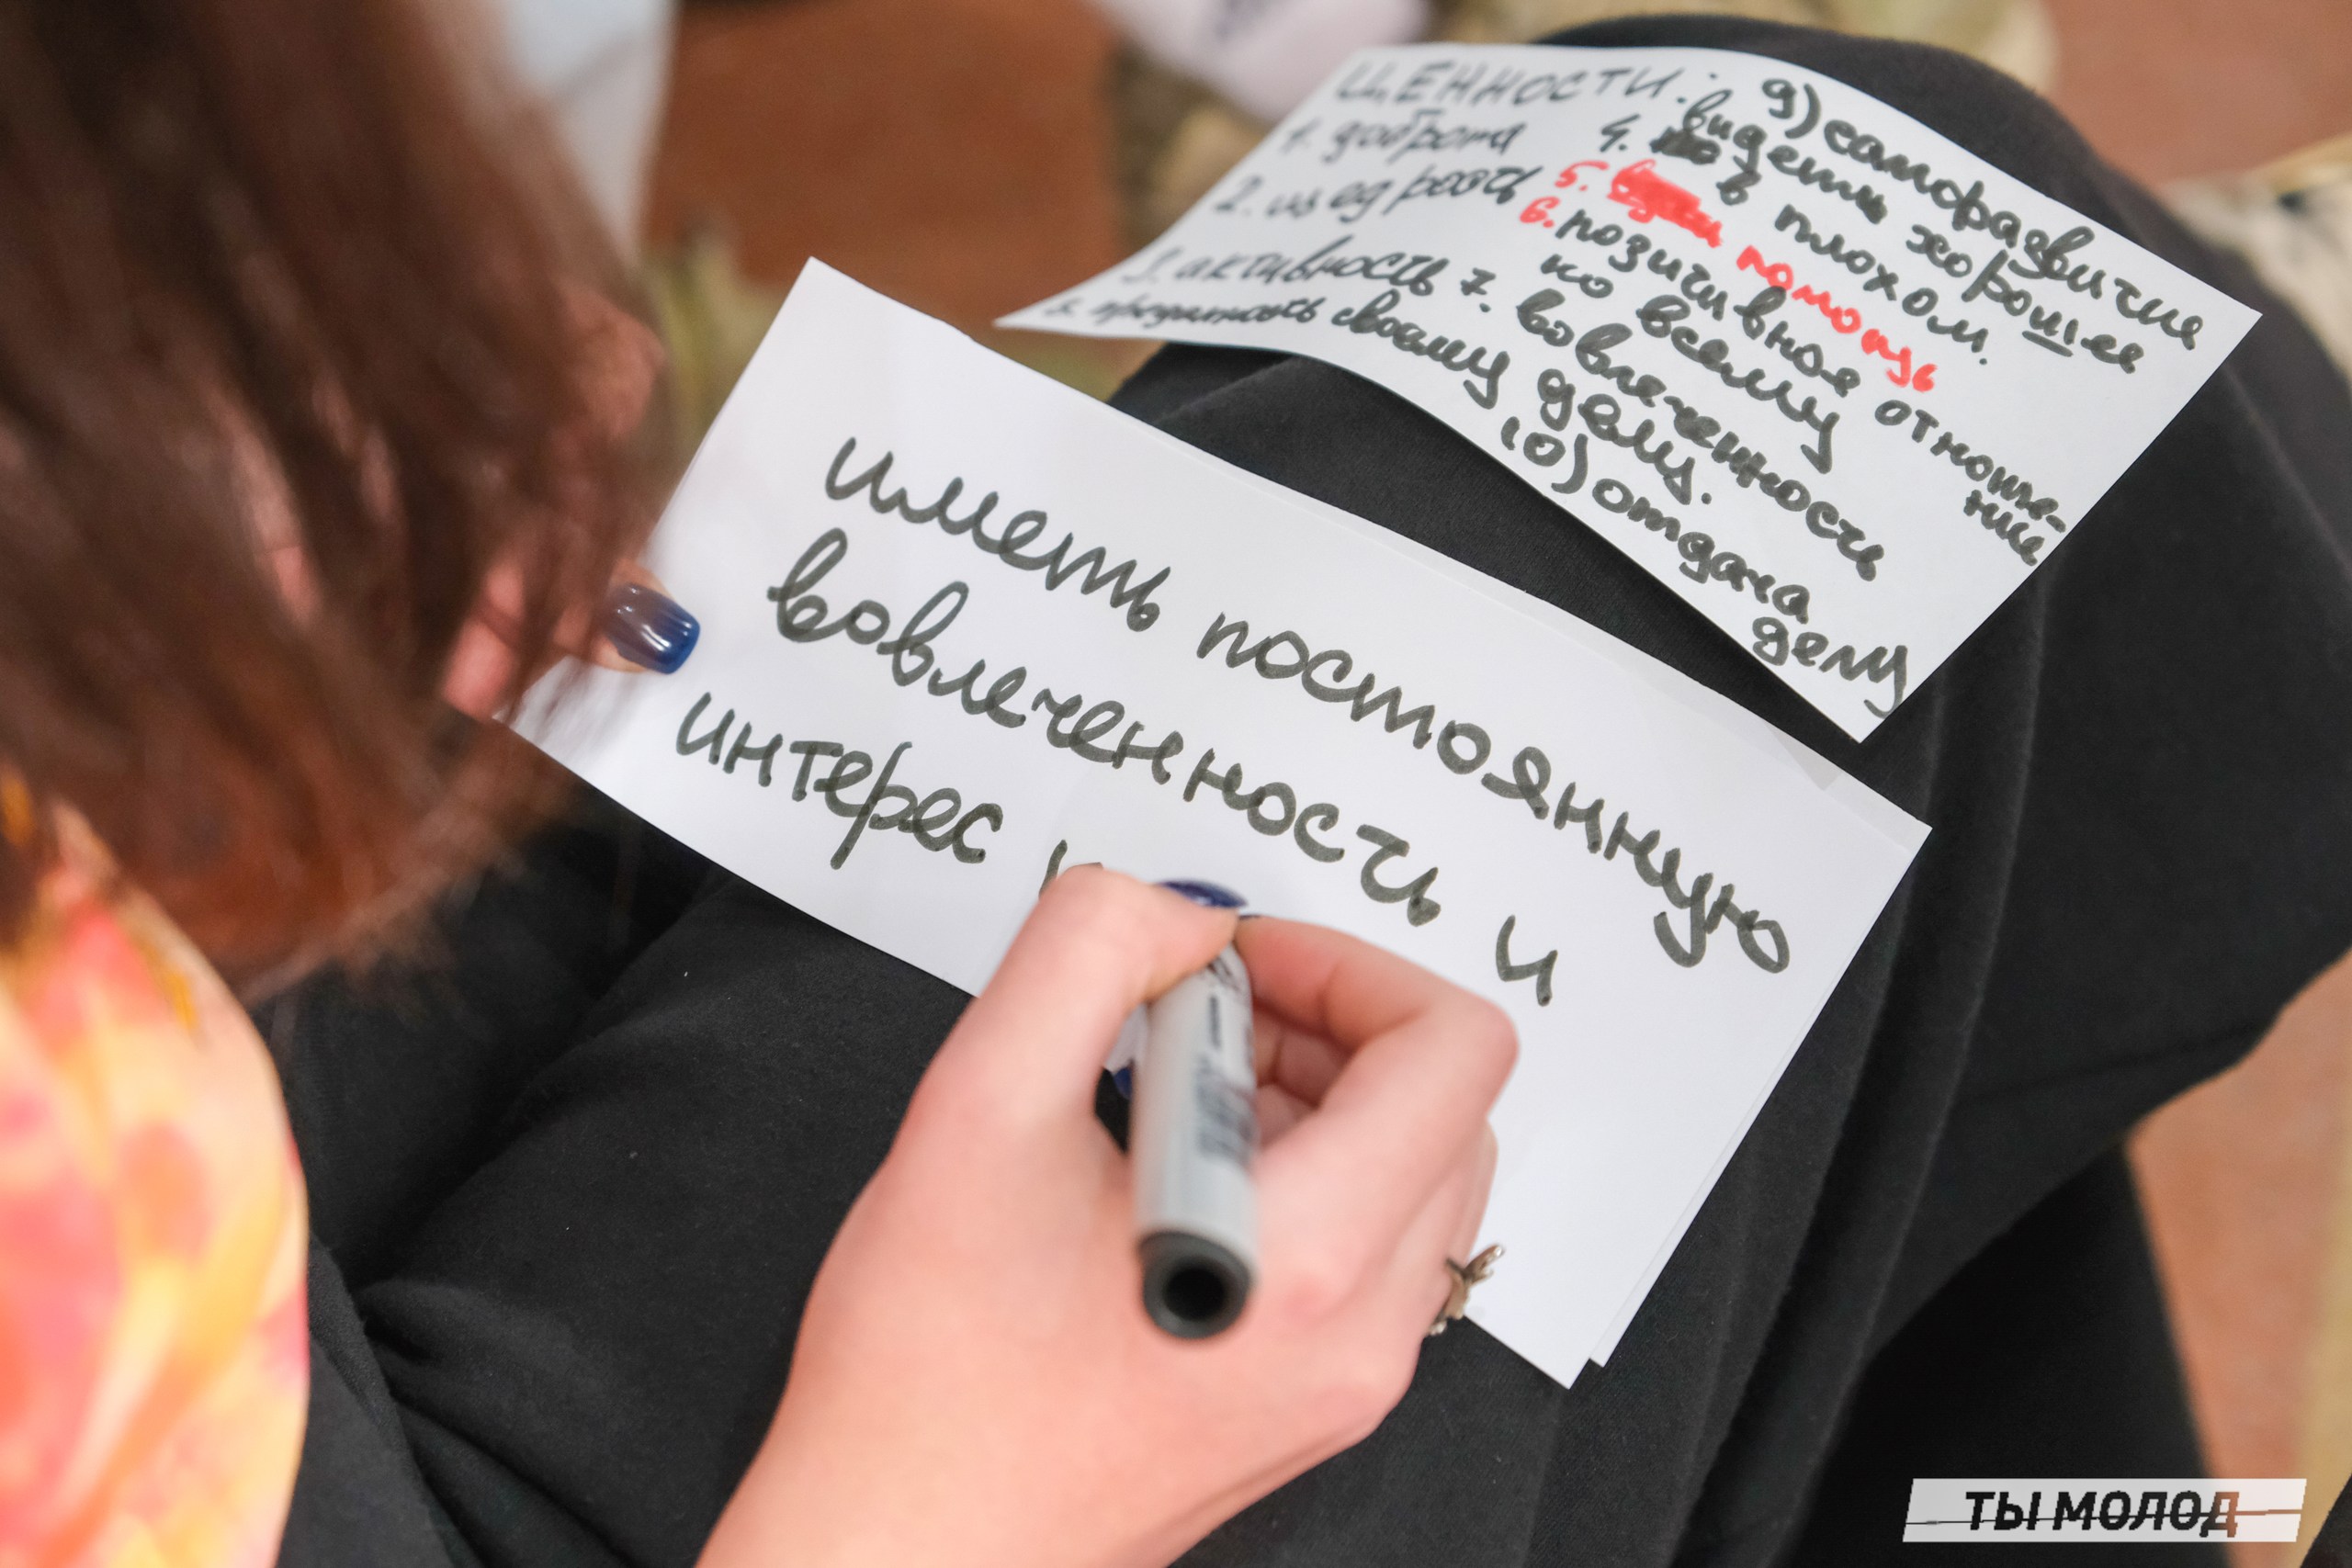 ЦЕННОСТИ:
1. доброта
2. щедрость
3. активность
4. видеть хорошее
в плохом.
5. помощь
6. позитивное отноше-
ние
ко всему
7. вовлеченность
8. преданность своему делу.
9) саморазвитие
10) отдача
делу
иметь постоянную
вовлеченность и
интерес
ТЫ МОЛОД